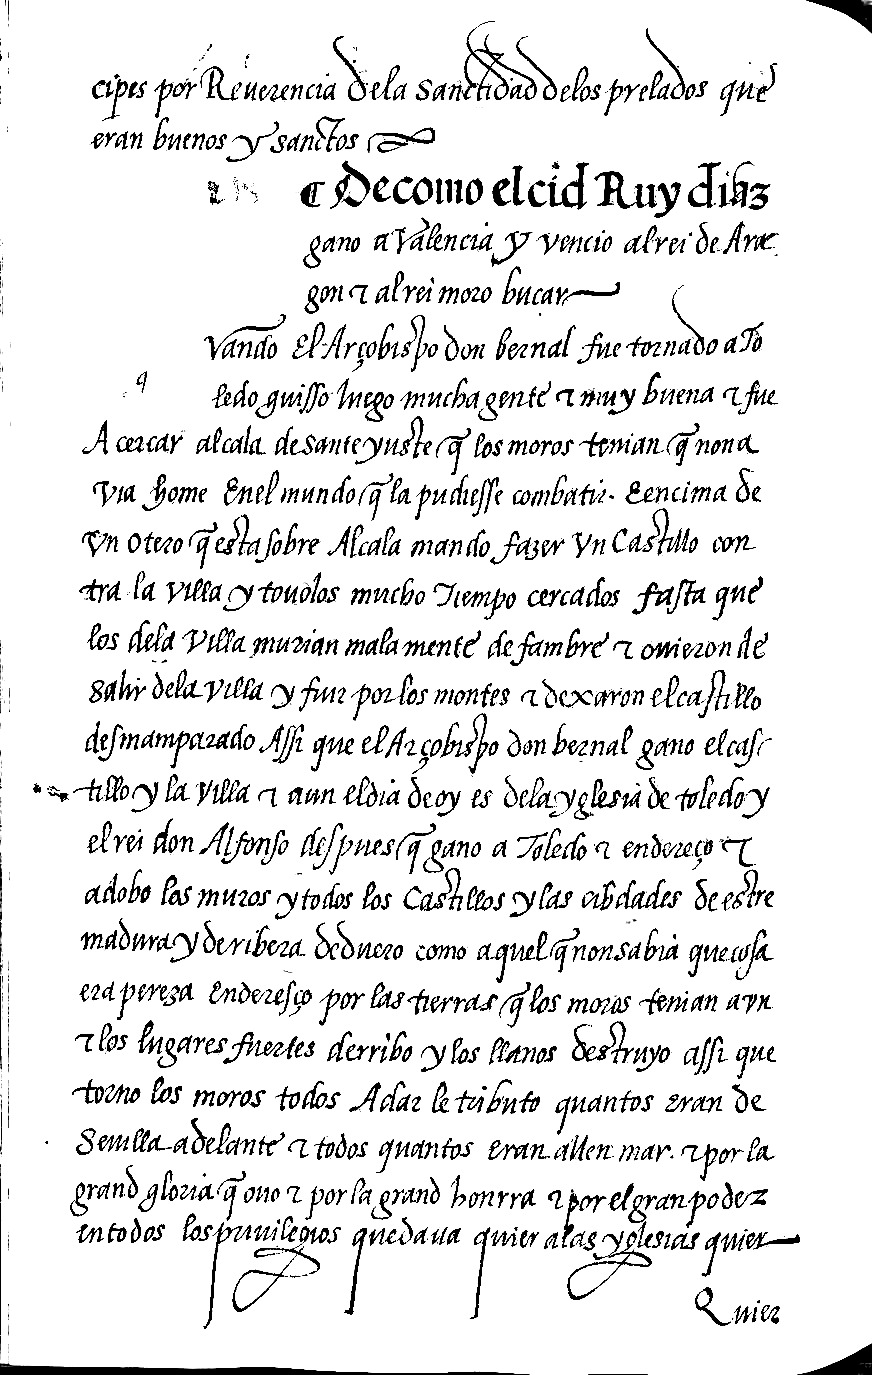 cipes por Reuerencia dela sanctidad delos prelados que
eran buenos y sanctos
¶ De como el cid Ruy diaz
gano a Valencia y vencio al rei de Ara
gon ⁊ al rei moro bucar
Vando El Arçobispo don bernal fue tornado a To
q
ledo guisso luego mucha gente ⁊ muy buena ⁊ fue
A cercar alcala de sante yuste q̃ los moros tenian q̃ non a
via home Enel mundo q̃ la pudiesse combatir. E encima de
Vn otero q̃ esta sobre Alcala mando fazer Vn Castillo con
tra la villa y touolos mucho Tiempo cercados fasta que
los dela Villa murian mala mente de fambre ⁊ ouieron de
Salir dela villa y fuir por los montes ⁊ dexaron el castillo
desmamparado Assi que el Arçobispo don bernal gano el cas
tillo y la villa ⁊ aun el dia de oy es dela yglesia de toledo y
el rei don Alfonso despues q̃ gano a Toledo ⁊ endereço ⁊
adobo los muros y todos los Castillos y las cibdades de estre
madura y de ribera de duero como aquel q̃ non sabia que cosa
era pereza Enderesço por las tierras q̃ los moros tenian avn
⁊ los lugares fuertes derribo y los llanos destruyo assi que
torno los moros todos A dar le tributo quantos eran de
Seuilla adelante ⁊ todos quantos eran allen mar. ⁊ por la
grand gloria q̃ ouo ⁊ por la grand honrra ⁊ por el gran poder
en todos los priuilegios que daua quier a las yglesias quier
Quier